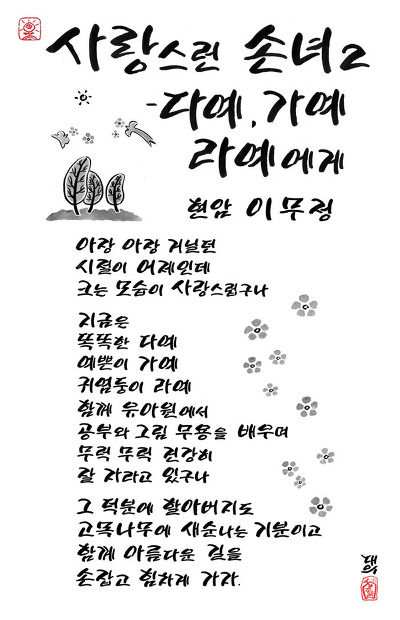 사랑스런 손녀 2
-다예, 가예
라예에게
현암 이무정
아장 아장 거닐던
시절이 어제인데
크는 모습이 사랑스럽구나
지금은
똑똑한 다예
예쁜이 가예
귀염둥이 라예
함께 유아원에서
공부와 그림 무용을 배우며
무럭 무럭 건강히
잘 자라고 있구나
그 덕분에 할아버지도
고목나무에 새순나는 기분이고
함께 아름다운 길을
손잡고 힘차게 가라.